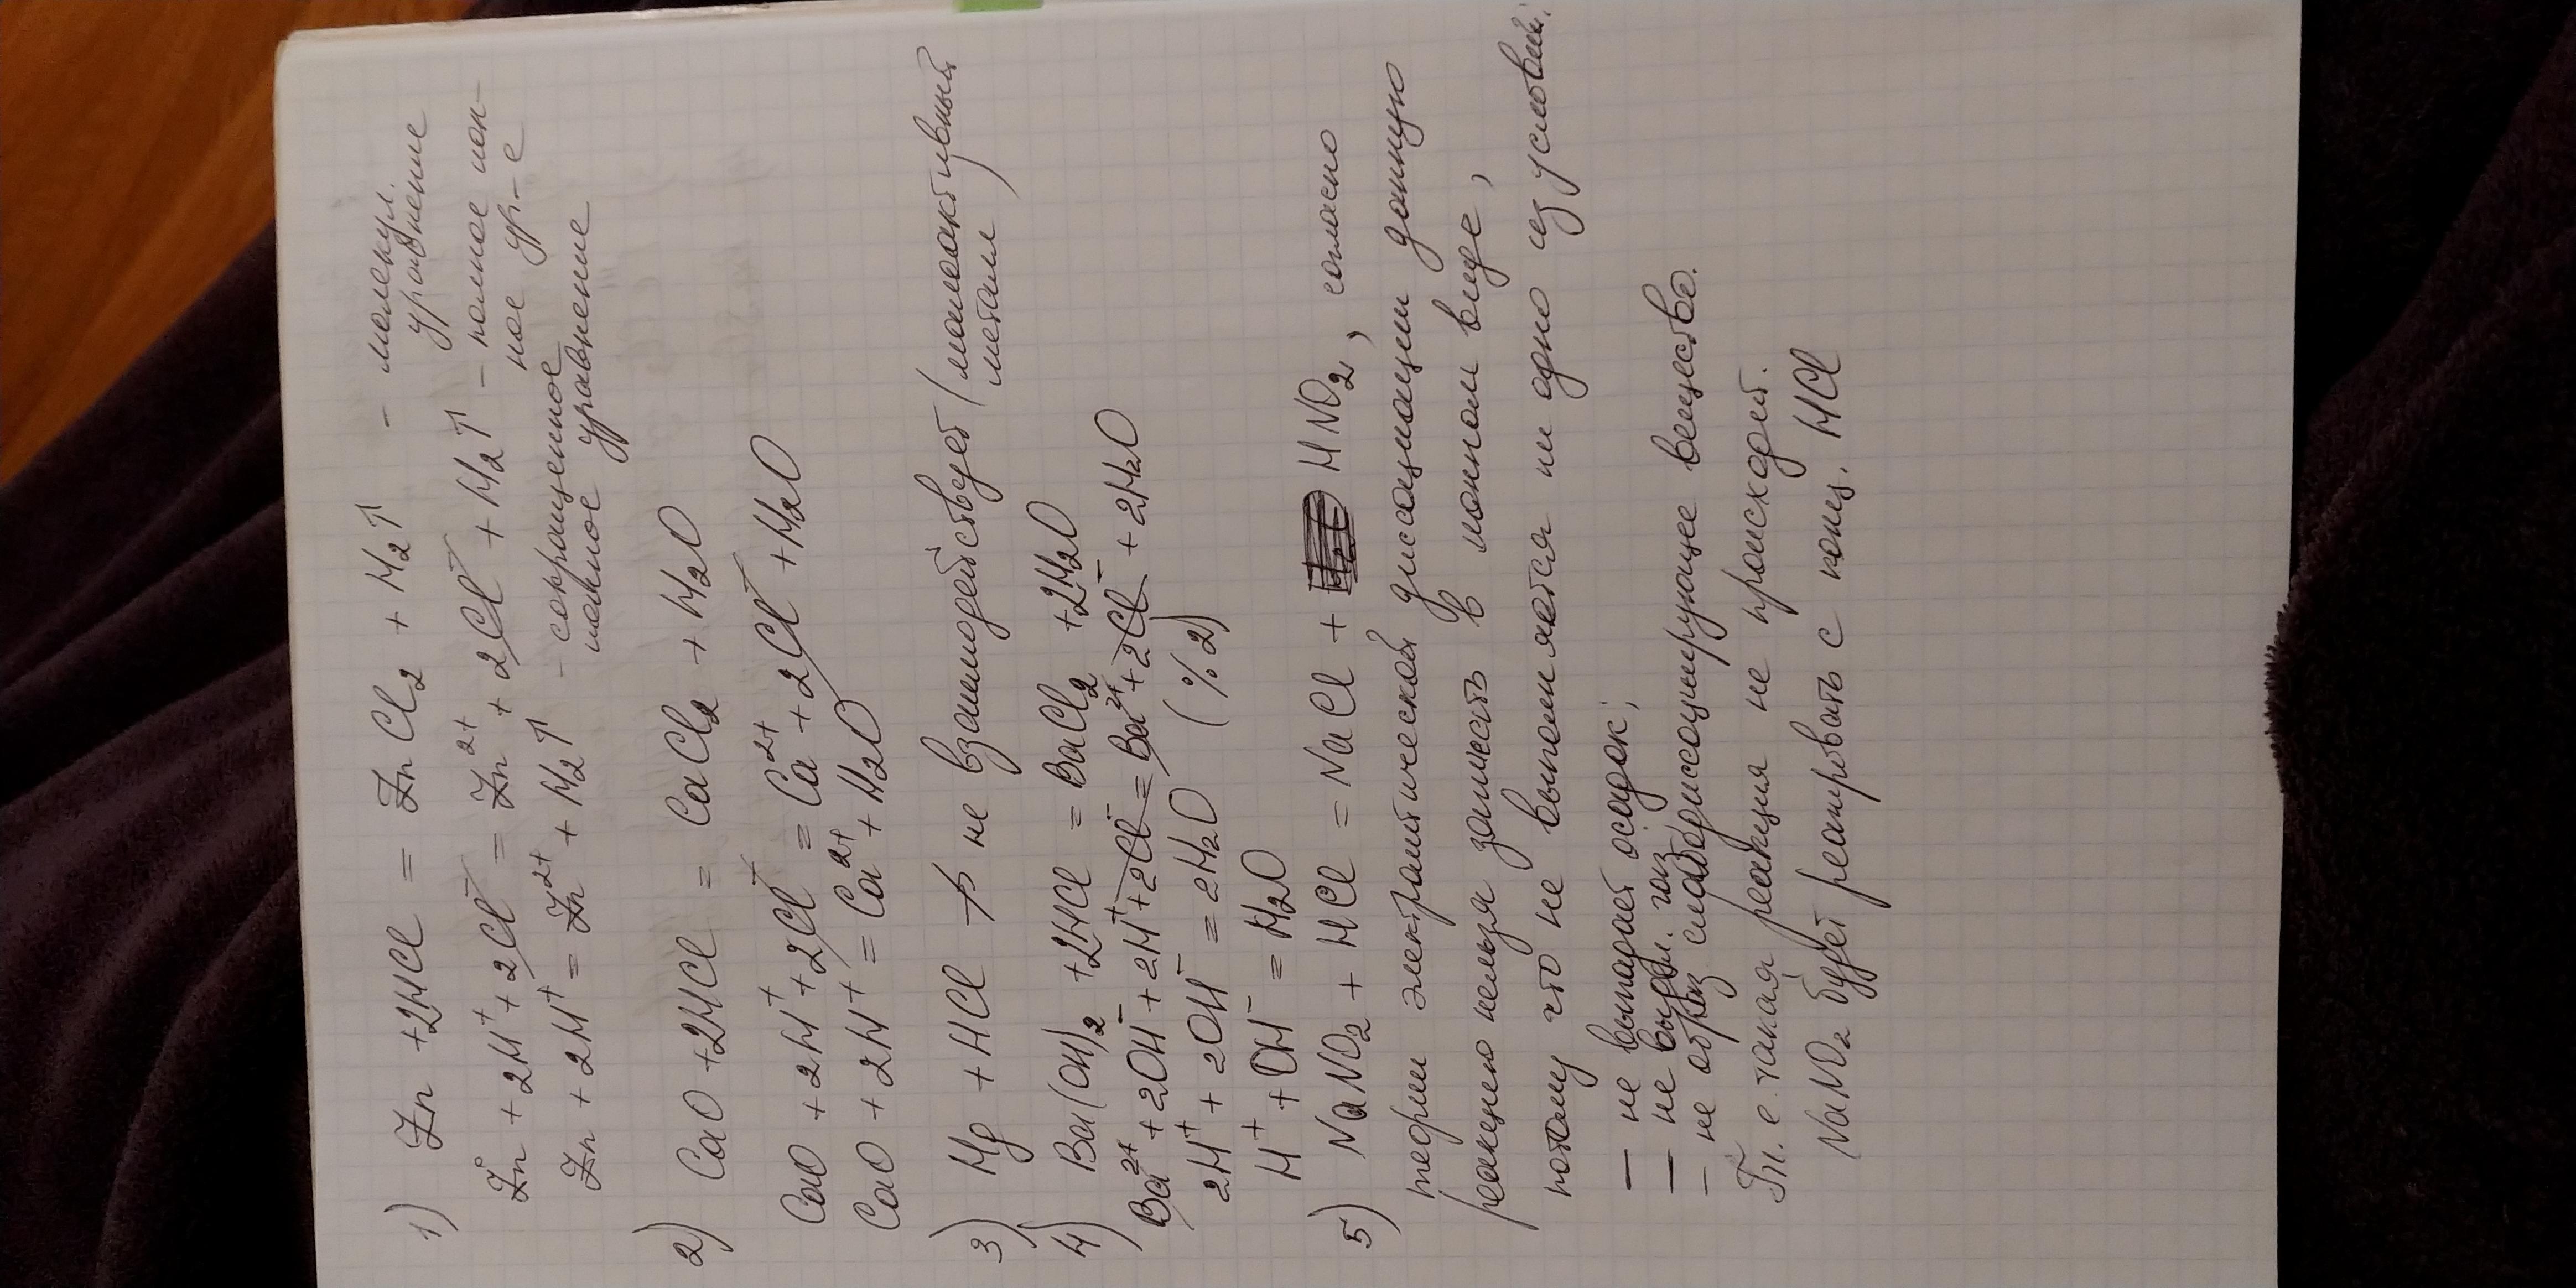 1) Zn + 2HCl = ZnCl₂ + H₂↑ - молекул. уравнение
Zn° + 2H⁺ + 2Cl⁻ = Zn²⁺ + 2Cl⁻ + H₂↑ - полное ион-
ное ур-е
Zn + 2H⁺ = Zn²⁺ + H₂↑ - сокращенное
ионное уравнение
2) CaO + 2HCl = CaCl₂ + H₂O
CaO + 2H⁺ + 2Cl⁻ = Ca²⁺ + 2Cl⁻ + H₂O
CaO + 2H⁺ = Ca²⁺ + H₂O
3) Hg + HCl ↛ не взаимодействует (малоактивный
металл)
4) Ba(OH)₂ + 2HCl = BaCl₂ + 2H₂O
Ba²⁺ + 2OH⁻ + 2H⁺ + 2Cl⁻ = Ba²⁺ + 2Cl⁻ + 2H₂O
2H⁺ + 2OH⁻ = 2H₂O (% 2)
H⁺ + OH⁻ = H₂O
5) NaNO₂ + HCl = NaCl + HNO₂, согласно
теории электролитической диссоциации данную
реакцию нельзя записать в ионном виде,
потому что не выполняется ни одно из условий:
— не выпадает осадок;
— не выдел. газ
- не образ слабодиссоциирующее вещество.
Т.е. такая реакция не происходит.
NaNO₂ будет реагировать с конц. HCl